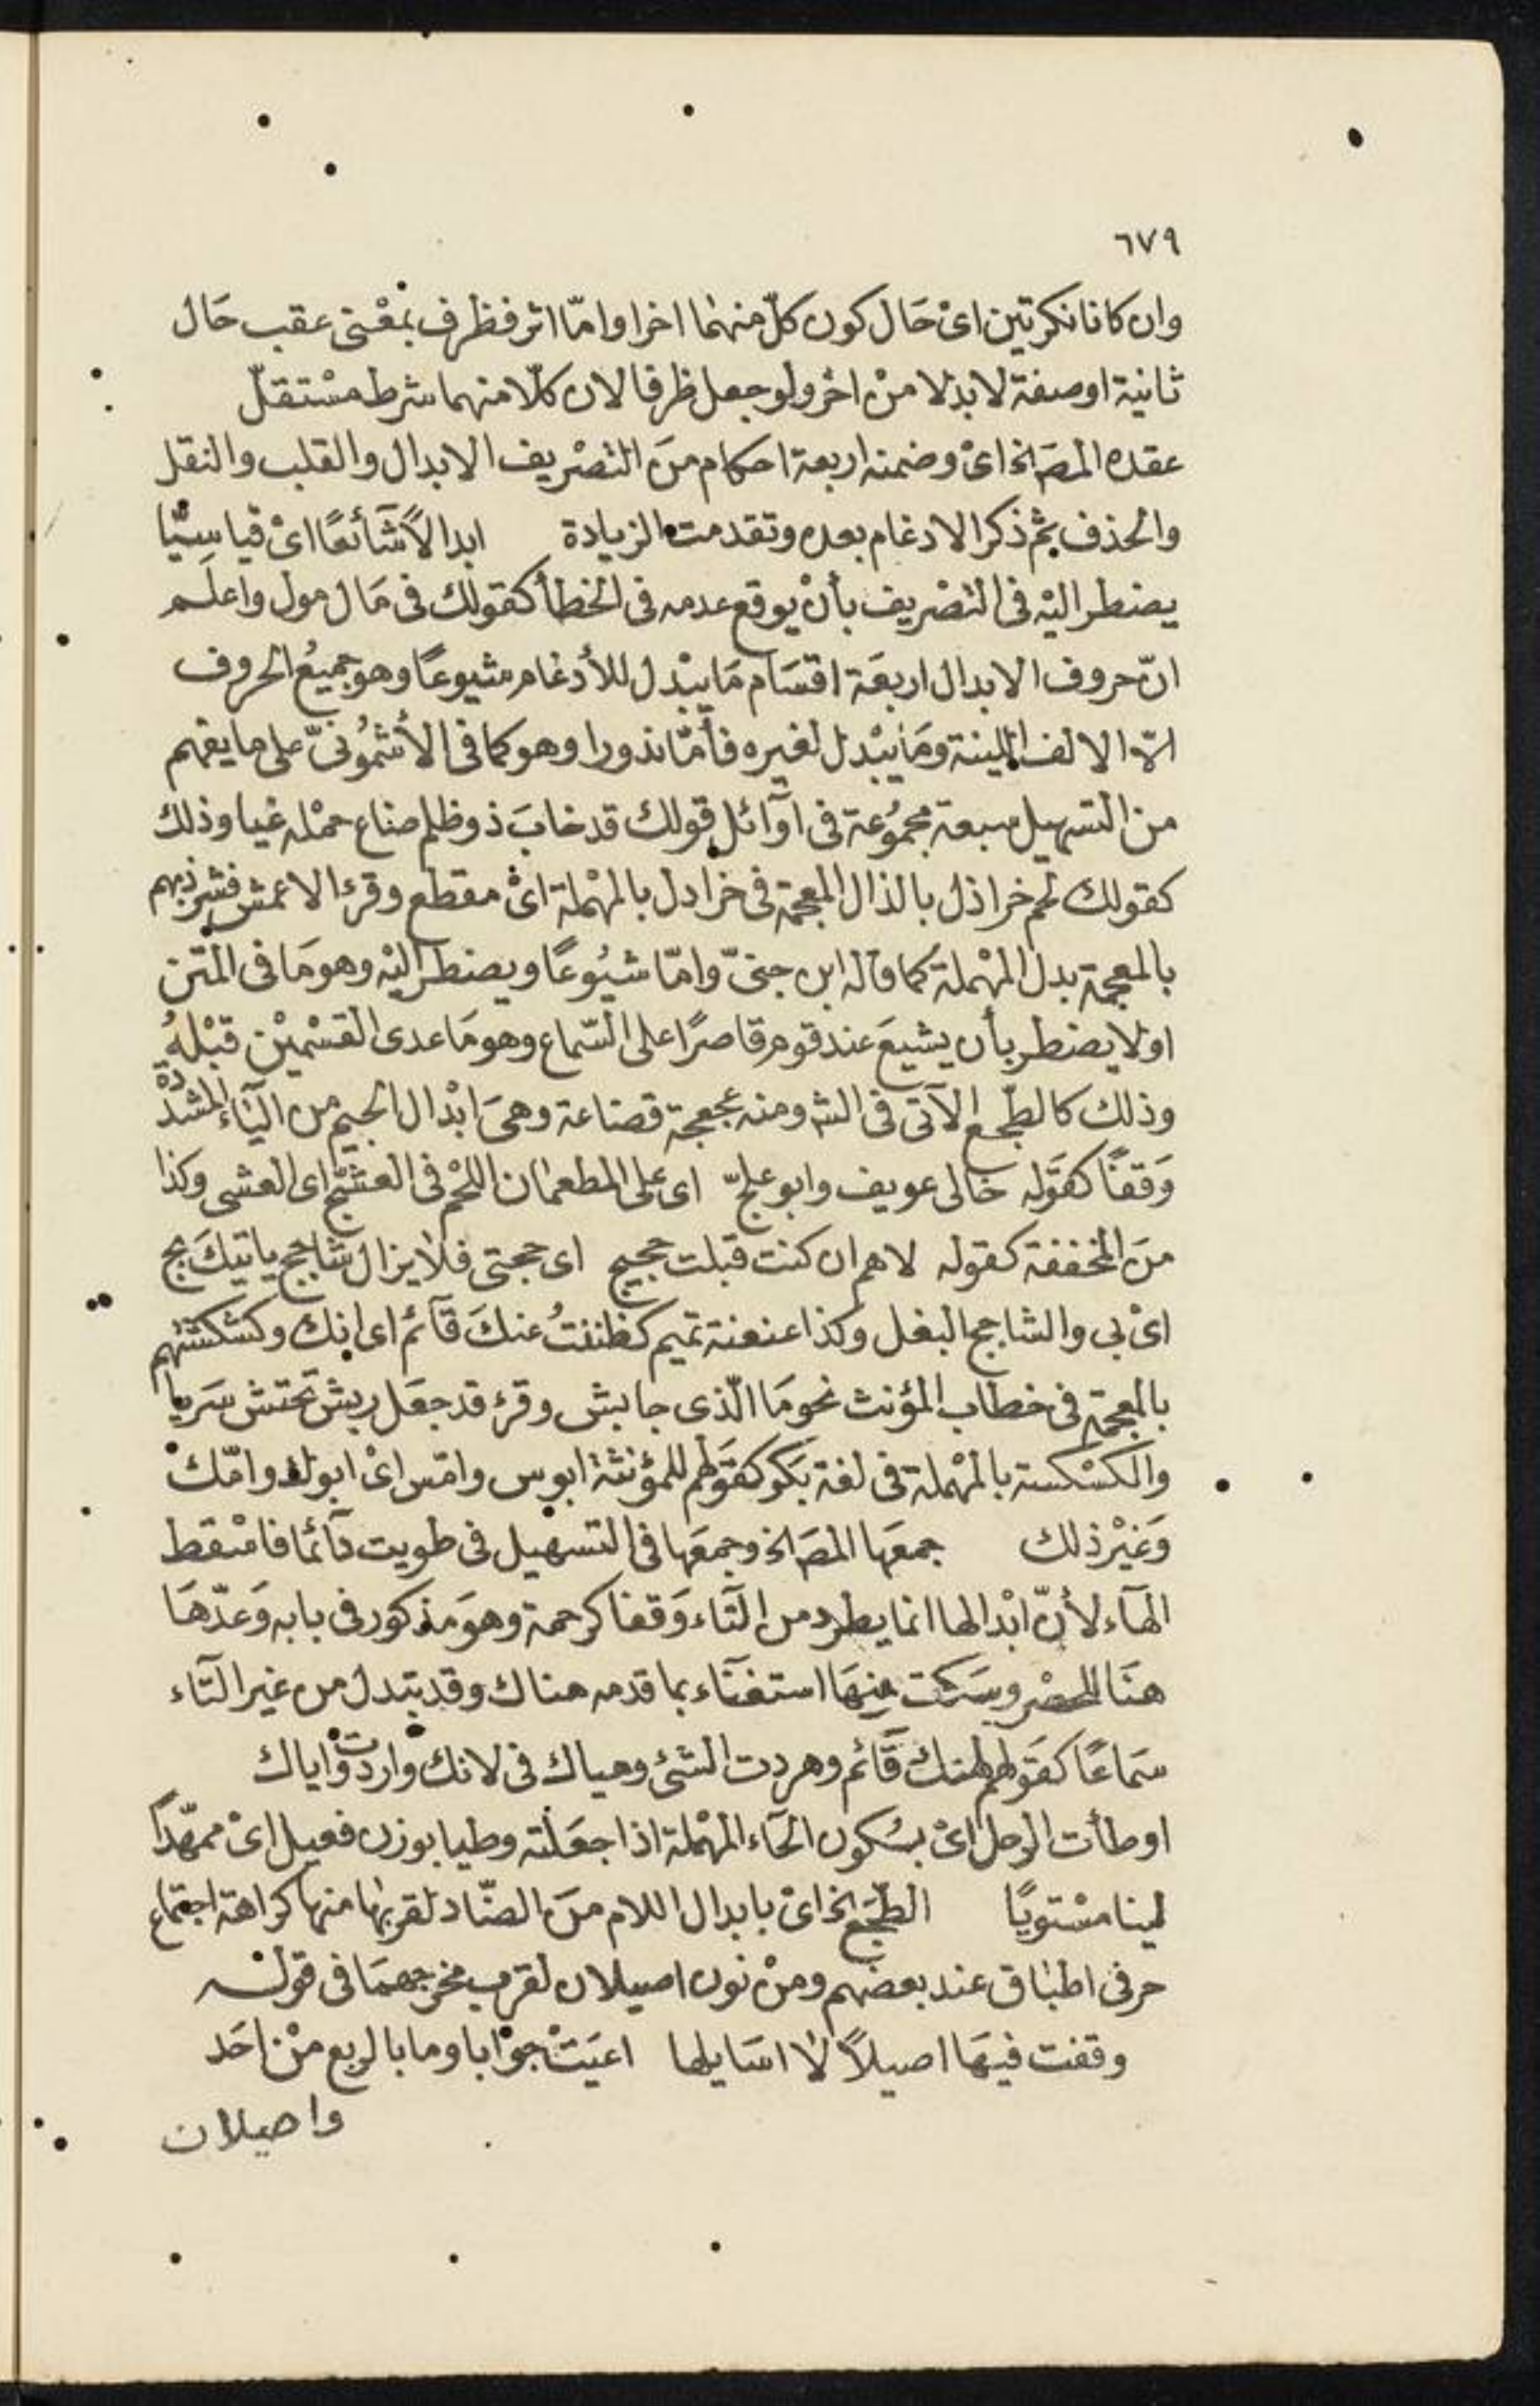 ٦٧٩
وان كانا نكرتين اىْ حَال كون كلّ منهما اخرا وامّا اثر فظرف بمعْنى عقب حَال
ثانية او صفة لا بدلا منْ اخر ولو جعل ظرفا لان كلّا منهما شرط مسْتقلّ
عقده المصَ الخ اىْ وضمنه اربعة احكام منَ التصْريف الابدال والقلب والنقل
والحذف ثم ذكر الادغام بعده وتقدمت الزيادة ابدالاً شَآئعًا اىْ قياسِيّا
يضطر اليْه فى التصْريف بأنْ يوقع عدمه فى الخطأ كقولك فى مَال مول واعلَم
انّ حروف الابدال اربعَة اقسَام مَا يبْدل للأدغام شيوعًا وهو جميعُ الحروف
الاّ الالف اللينة ومَا يبْدل لغيره فأمّا نذورا وهو كما فى الأشمُونىّ على ما يفهم
من التسهيل سبعة مجمُوعة فى اوآئل قولك قد خابَ ذو ظلم ضاع حمْله غيا وذلك
كقولك لحم خراذل بالذال المعجمة فى خرادل بالمهْملة اىْ مقطع وقرء الاعمش فشرذ بهم
بالمعجمة بدل المهْملة كما قاله ابن جنىّ وامّا شيُوعًا ويضطر اليْه وهو مَا فى المتن
او لا يضطر بأن يشيعَ عند قوم قاصرًا على السّماع وهو مَا عدى القسْميْن قبْلهُ
وذلك كالطّجع الآتى فى الشه ومنه عجعجة قضاعة وهىَ ابْدال الجيم من اليَاء المشدّدة
وَقفًا كقوْله خالى عويف وابو علجّ اى على المطعمان اللحْم فى العشجّ اى العشى وكذا
منَ المخففة كقوله لاهم ان كنت قبلت حجتج اى حجتى فلا يزال شاحج ياتيكَ بج
اىْ بى والشاحج البغل وكذا عنعنة تميم كظننتُ عنكَ قآئم اى انك وكشكشتهم
بالمعجمة فى خطاب المؤنث نحو مَا الّذى جا بش وقرء قد جعَل ربش تحتش سَريا
والكسْكسة بالمهْملة فى لغة بَكر كقوَلهم للمؤنثة ابوس وامّس اىْ ابوك وامّكْ
وَغيْر ذلك جمعَها المصَ الخ وجمعَها فى التسهيل فى طويت دآئما فاسْقط
الهآء لأنّ ابْدالها انما يطرد من التآء وَقفا كرحمة وهوَ مذكور فى بابه وَعدّهَا
هنَا للحصْر وسَكت عنهَا استغنآء بما قدمه هناك وقد تبدل من غير التآء
سَمَاعًا كقوَلهم لهنك قآئم وهردت الشئ وهياك فى لانك واردت واياك
اوطأت الرحل اىْ بسُكون الحآء المهْملة اذا جعَلته وطيا بوزن فعيل اىْ ممهّدًا
لينا مسْتويًا الطّجَع الخ اىْ بابدال اللام منَ الضّاد لقربها منها كراهة اجتماع
حرفى اطباق عند بعضهم ومنْ نون اصيلان لقرب مخرجهمَا فى قوله
وقفت فيهَا اصيلاً لا اسَايلها اعيَتْ جوْابا وما بالربع منْ احَد
واصيلان